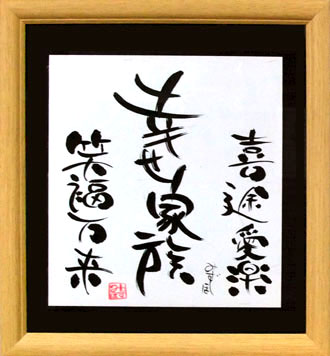 喜途愛楽
幸せ家族
笑福来